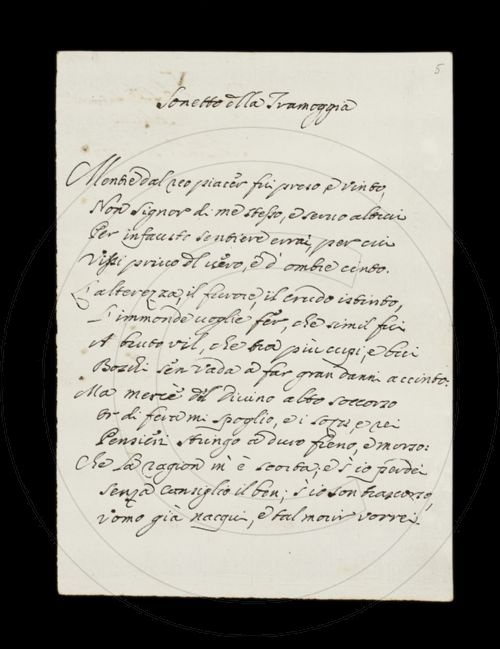 5
Sonetto della Tramoggia
Mentre dal reo piacer fui preso e vinto,
Non signor di me stesso, e servo altrui
Per infausto sentiere errai, per cui
Vissi privo del vero, e d'ombre cinto.
L'alterezza, il furore, il crudo istinto,
L'immonde voglie fer, che simil fui
A bruto vil, che tra più cupi, e bui
Boschi sen vada a far gran danni accinto:
Ma mercè del Divino alto soccorso
Or di fera mi spoglio, e i sozzi, e rei
Pensieri stringo a duro freno, e morso:
Che la ragion m'è scorta; e s'io perdei
senza consiglio il ben; s'io son trascorso,
uomo già nacqui, e tal morir vorrei